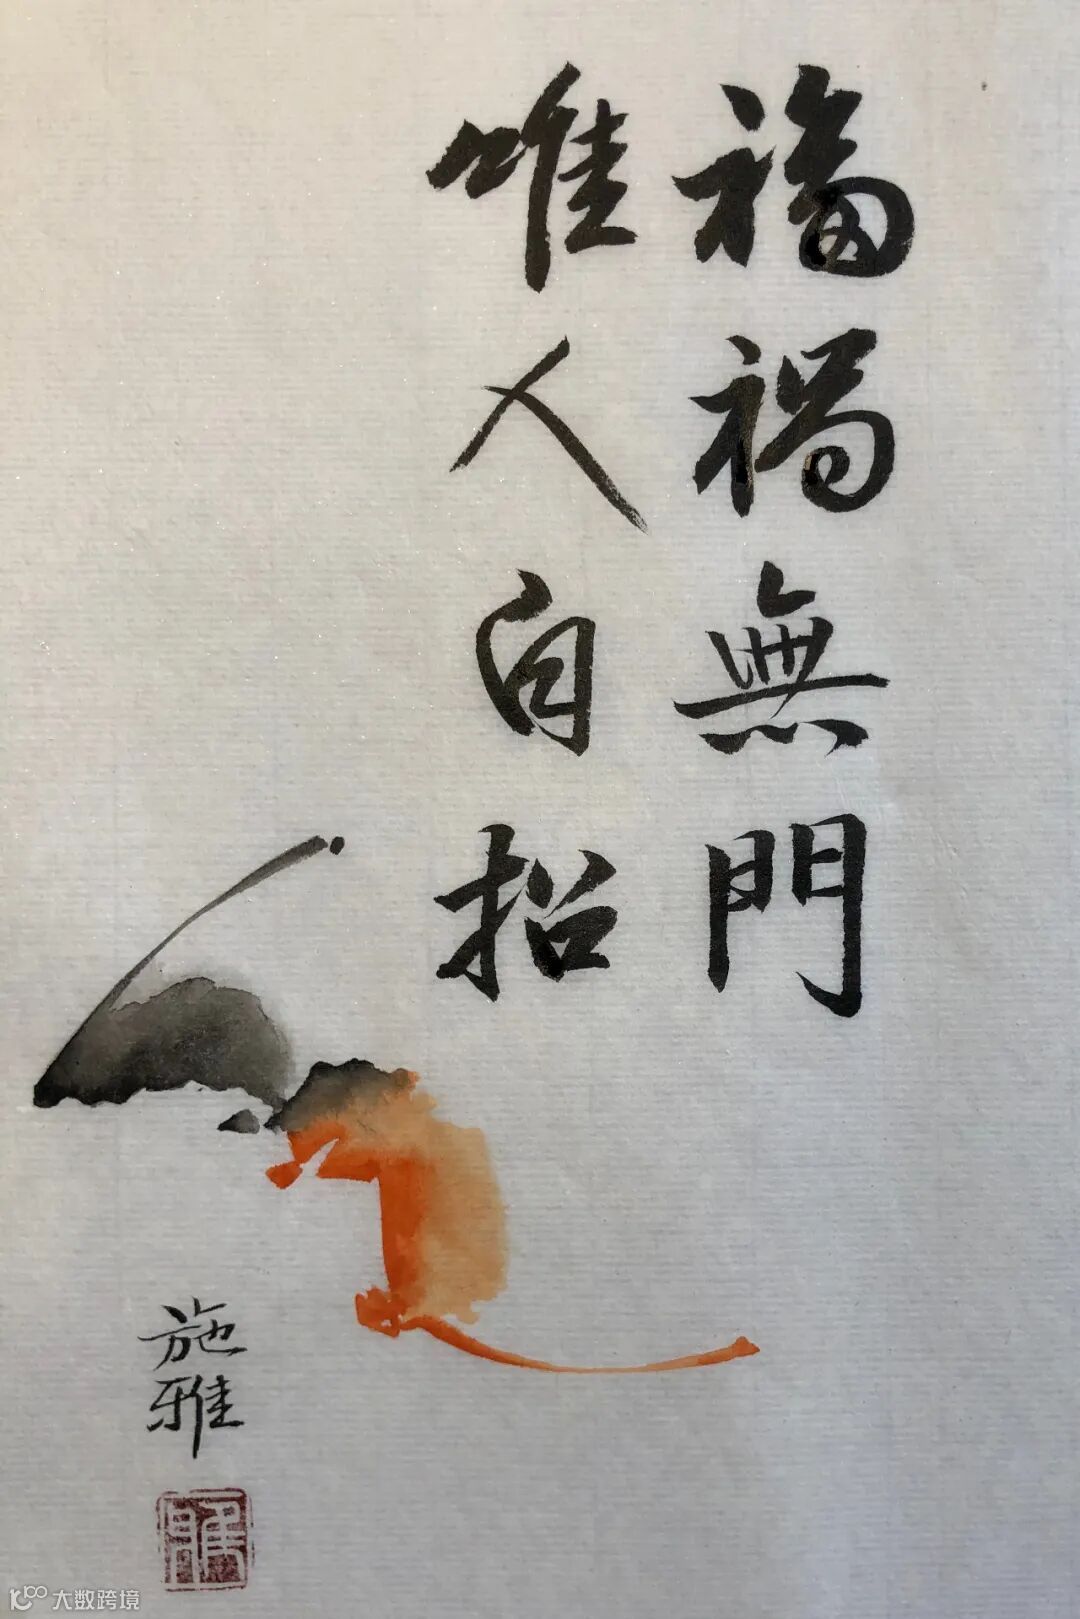 福禍無門
唯人自招
施雅
大数跨境